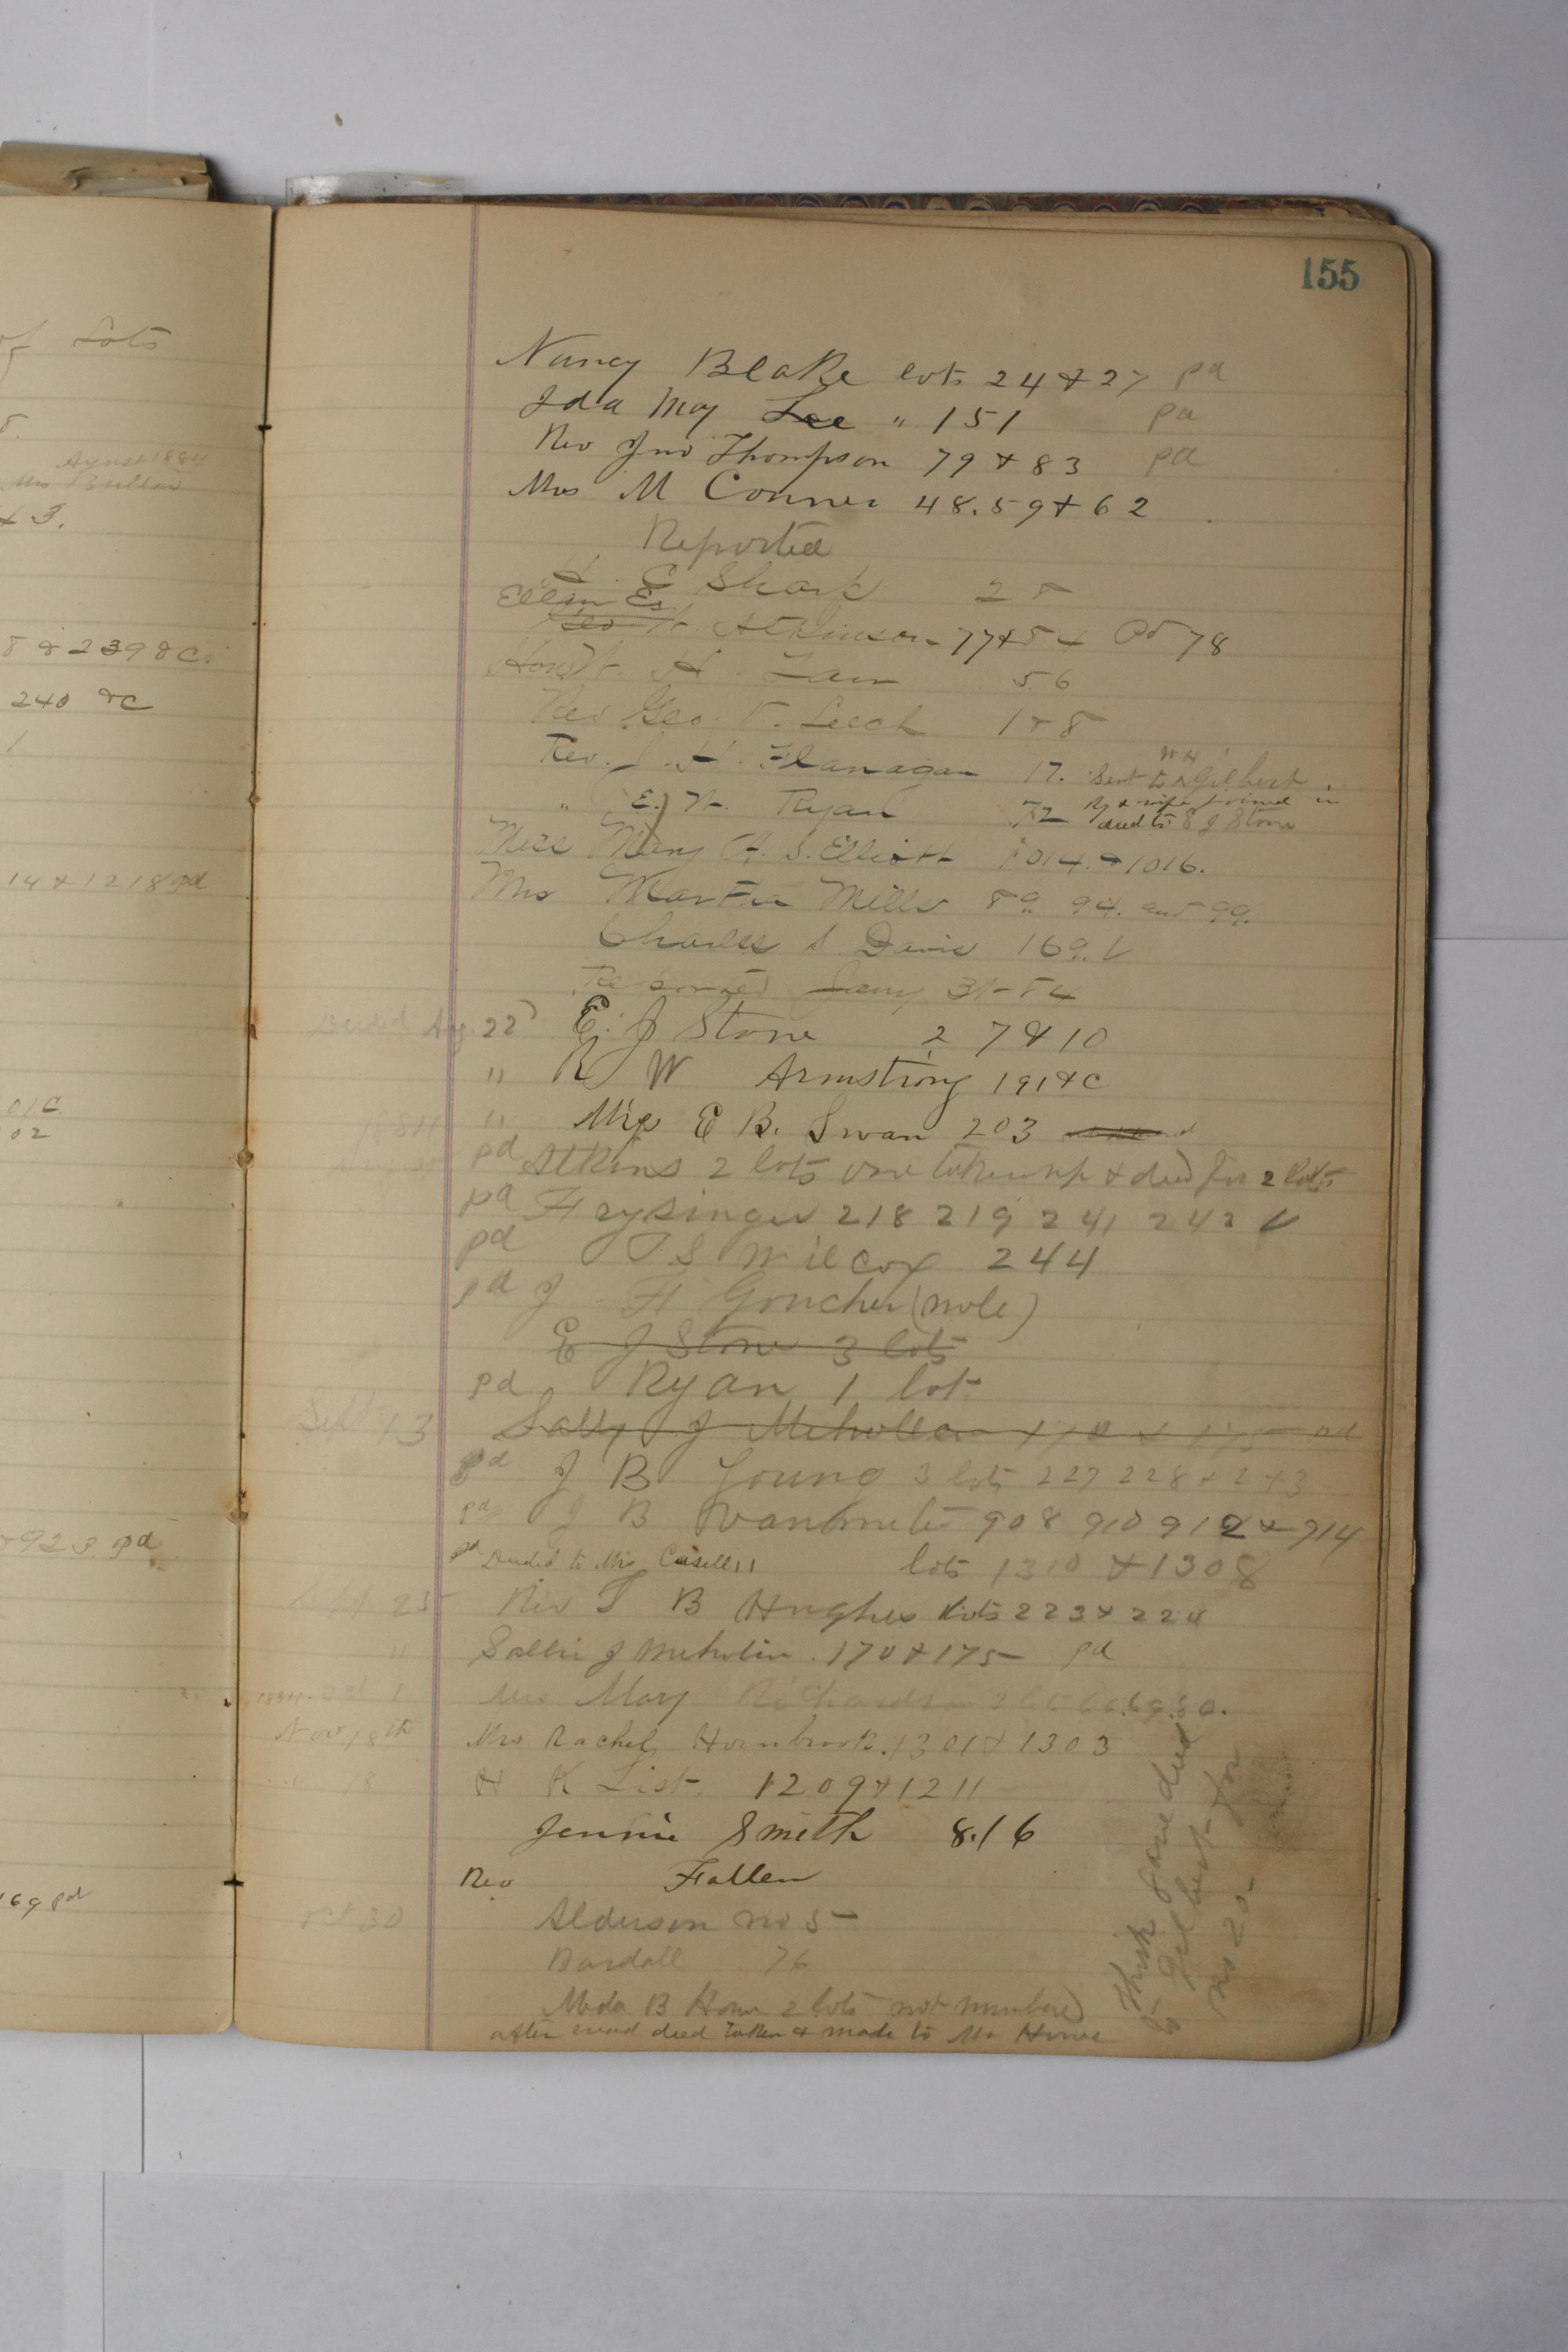 of Lots
August 1884
Mrs Butler
& 3.
8 & 239 &c
240 &c
14 & 1218 pd
01C
02
& 923 pd
169 pd
155
Nancy Blake lots 24 & 27 pd
Ida May Lee " 151 pd
Rev Jno Thompson 79 & 83 pd
Mrs M Conner 48. 59 & 62
Reported
E Shark
Ellen Es
Geo W. Atkinson 77 & 54 Pd 78
H. 56
Rev Geo. V. Leech 1 & 8
Rev. J. H. Flanagan 17. Sent to W H Gilbert
" E. W. Ryan 72 Ry & wife joined in
deed to E J Stone
Miss Mary A. S. Elliott 1014. & 1016.
Mrs Martin Mills 89. 94. and 99.
Charles S Davis 169.
Reported Jany 31-84
Deeded Aug. 22 E. J Stone 2 7 & 10
" R W Armstrong 191 &c
1884 " Miss E B. Swan 203
pd Atkins 2 lots one taken up & deed for 2 lots
pd Frysinger 218 219 241 242
pd T S Wilcox 244
pd J F Goucher (note)
E J Stone 3 lots
pd Ryan 1 lot
Sept 13 Sally J Meholin 170 & 175 pd
pd J B Young 3 lots 227 228 & 243
pd J B Vanmeter 908 910 912 & 914
pd Deeded to Mrs Casell lots 1310 & 1308
Sept 25 Rev T B Hughes lots 223 & 224
" Sallie J Meholin. 170 & 175 pd
1884. Oct 1 Mrs Mary Richardson 66. 69. 80.
Nov 18th Mrs Rachel Hornbrook. 1301 & 1303
" 18 H K List. 1209 & 1211
Jennie Smith 8.16
Rev Fallen
Oct 30 Alderson no 5
Bardall 76
Meda B Howe 2 lots not numbered
after word deed taken & made to Mr Howe
Think gave deed
to Gilbert for
no 20